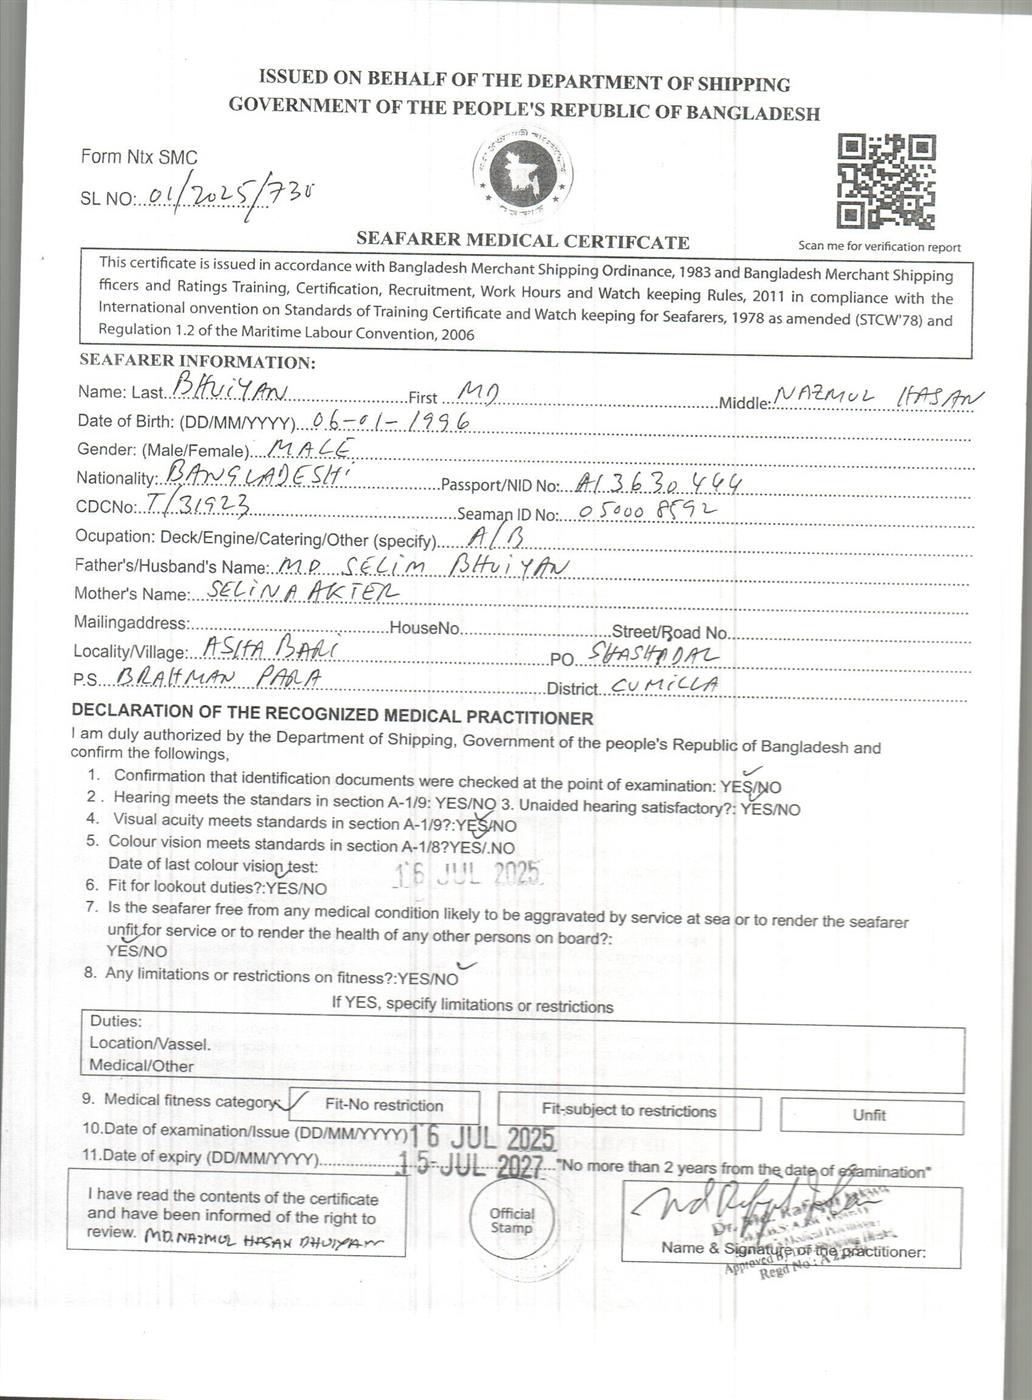 ISSUED ON BEHALF OF THE DEPARTMENT OF SHIPPING
GOVERNMENT OF THE PEOPLE'S REPUBLIC OF BANGLADESH
Form Ntx SMC
SL NO:..01/2025/730
SEAFARER MEDICAL CERTIFCATE
Scan me for verification report
This certificate is issued in accordance with Bangladesh Merchant Shipping Ordinance, 1983 and Bangladesh Merchant Shipping
fficers and Ratings Training, Certification, Recruitment, Work Hours and Watch keeping Rules, 2011 in compliance with the
International onvention on Standards of Training Certificate and Watch keeping for Seafarers, 1978 as amended (STCW'78) and
Regulation 1.2 of the Maritime Labour Convention, 2006
SEAFARER INFORMATION:
Name: Last. BHUIYAN First MD Middle: NAZMUL HASAN
Date of Birth: (DD/MM/YYYY) 06-01-1996
Gender: (Male/Female) MALE
Nationality: BANGLADESHI Passport/NID No: A13630444
CDCNo: T/31923 Seaman ID No: 050008592
Ocupation: Deck/Engine/Catering/Other (specify) A/B
Father's/Husband's Name: MD SELIM BHUIYAN
Mother's Name: SELINA AKTER
Mailingaddress: HouseNo. Street/Road No.
Locality/Village: ASHA BARI PO SHASHADAL
P.S BRAHMAN PARA District CUMILLA
DECLARATION OF THE RECOGNIZED MEDICAL PRACTITIONER
I am duly authorized by the Department of Shipping, Government of the people's Republic of Bangladesh and
confirm the followings,
1. Confirmation that identification documents were checked at the point of examination: YES/NO
2 . Hearing meets the standars in section A-1/9: YES/NO 3. Unaided hearing satisfactory?: YES/NO
4. Visual acuity meets standards in section A-1/9?:YES/NO
5. Colour vision meets standards in section A-1/8?YES/.NO
Date of last colour vision test: 16 JUL 2025
6. Fit for lookout duties?:YES/NO
7. Is the seafarer free from any medical condition likely to be aggravated by service at sea or to render the seafarer
unfit for service or to render the health of any other persons on board?:
YES/NO
8. Any limitations or restrictions on fitness?:YES/NO
If YES, specify limitations or restrictions
Duties:
Location/Vassel.
Medical/Other
9. Medical fitness category Fit-No restriction Fit-subject to restrictions Unfit
10.Date of examination/Issue (DD/MM/YYYY) 16 JUL 2025
11.Date of expiry (DD/MM/YYYY) 15 JUL 2027 "No more than 2 years from the date of examination"
I have read the contents of the certificate
and have been informed of the right to
review. MD.NAZMUL HASAN BHUIYAN
Official
Stamp
Name & Signature of the practitioner: